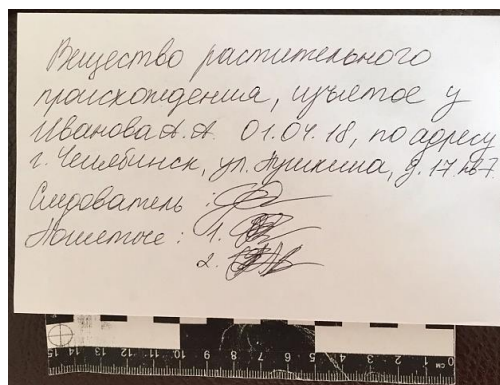 Вещество растительного
происхождения, изъятое у
Иванова А.А. 01.04.18, по адресу
г. Челябинск, ул. Пушкина, д. 17 кв 7.
Следователь :
Понятые : 1.
2.
15 14 13 12 11 10 9 8 7 6 5 4 3 2 1 CM 0